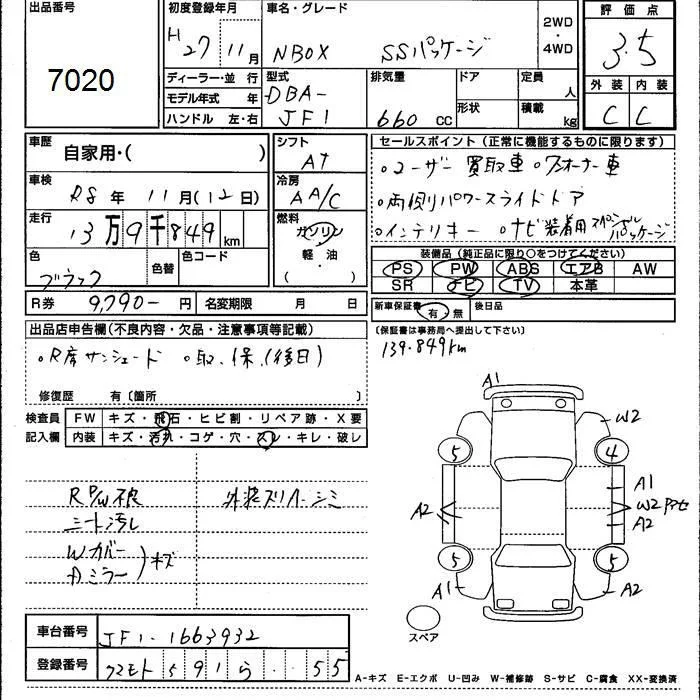 出品番号
7020
初度登録年月
H 27 11月
車名・グレード
NBOX SSパッケージ
2WD
・
4WD
評価点
3.5
外装 内装
C C
ディーラー・並行
モデル年式 年
ハンドル 左・右
型式
DBA-
JF1
排気量
660 cc
ドア
形状
定員
人
積載
kg
車歴
自家用・( )
車検
R8 年 11月(12日)
走行
13万9千849km
色
ブラック
色替
色コード
シフト
AT
冷房
AA/C
燃料
ガソリン
軽・油
( )
セールスポイント (正常に機能するものに限ります)
。ユーザー買取車 。ワンオーナー車
。両側パワースライドドア
。インテリキー 。ナビ装着用スペシャルパッケージ
装備品 (純正品に限り○をつけてください)
PS PW ABS エアB AW
SR ナビ TV 本革
R券 9,790- 円 名変期限 月 日
新車保証書 有・無 後日品
(保証書は事務局へ提出して下さい)
139.849km
出品店申告欄 (不良内容・欠品・注意事項等記載)
。R席サンシェード 。取、保、(後日)
修復歴 有〔箇所 〕
検査員
記入欄
FW キズ・飛石・ヒビ割・リペア跡・X要
内装 キズ・汚れ・コゲ・穴・スレ・キレ・破レ
R P/W不良
外装スリキズ シミ
シート汚し
Wカバー
Dミラー
キズ
A1
W2
5
4
A1
A2
W2
A2
5
5
A1
A2
スペア
車台番号 JF1-1663932
登録番号 クマモト 591 ら ・・55
A-キズ E-エクボ U-凹み W-補修跡 S-サビ C-腐食 XX-変換済